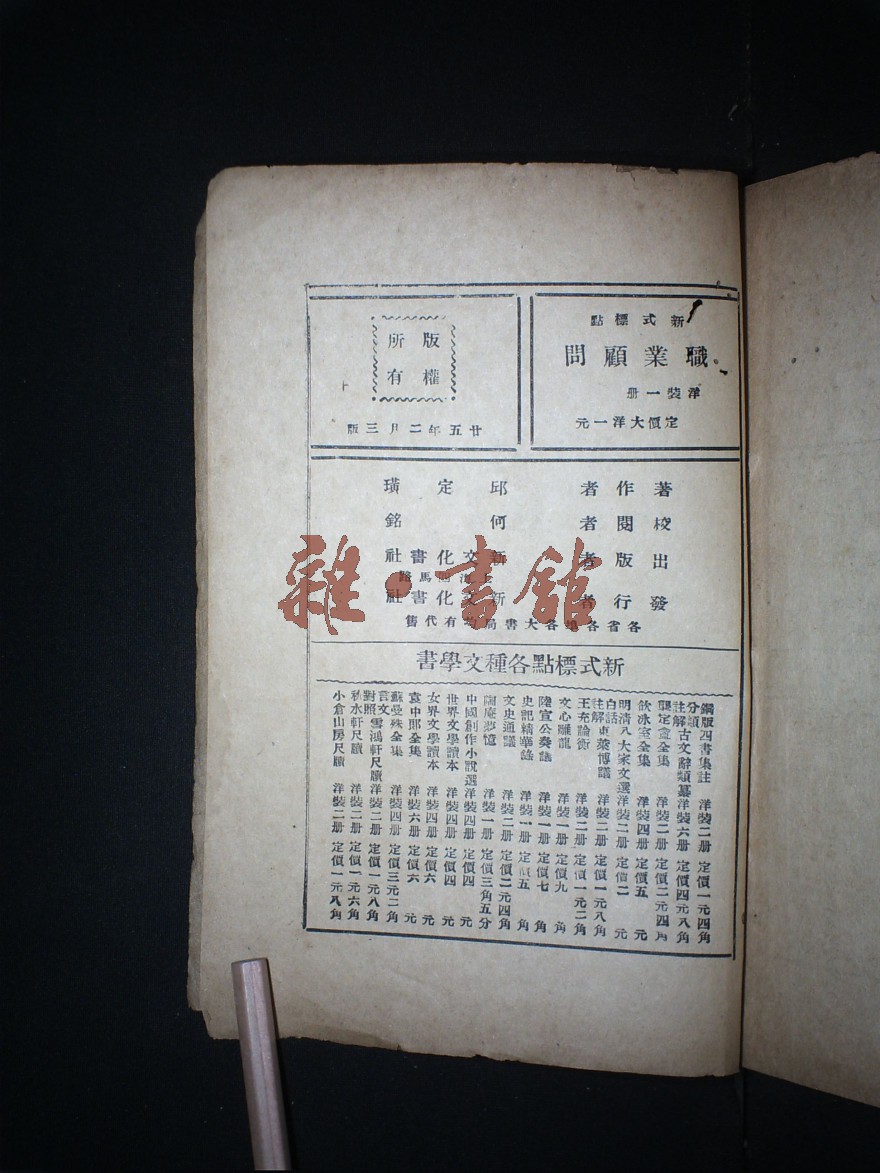 新式標點
職業顧問
洋裝一册
定價大洋一元
版權
所有
廿五年二月三版
著作者 邱定璜
校閱者 何銘
出版者 新文化書社
上海四馬路
發行者 新文化書社
各省各埠各大書局均有代售
新式標點各種文學書
銅版四書集註 洋裝二册 定價一元四角
分類註解古文辭類纂 洋裝六册 定價四元八角
龔定盦全集 洋裝二册 定價二元四角
飲冰室全集 洋裝四册 定價五元
明清八大家文選 洋裝二册 定價二元
白話註解東萊博議 洋裝二册 定價一元八角
王充論衡 洋裝二册 定價一元二角
文心雕龍 洋裝一册 定價九角
陸宣公奏議 洋裝一册 定價七角
史記精華錄 洋裝一册 定價五角
文史通議 洋裝二册 定價二元四角
陶庵夢憶 洋裝一册 定價三角五分
中國創作小說選 洋裝四册 定價四元
世界文學讀本 洋裝四册 定價四元
女界文學讀本 洋裝四册 定價六元
袁中郎全集 洋裝六册 定價六元
蘇曼殊全集 洋裝四册 定價三元二角
言文對照雪鴻軒尺牘 洋裝二册 定價一元八角
秋水軒尺牘 洋裝二册 定價一元六角
小倉山房尺牘 洋裝二册 定價一元八角
雜·書館